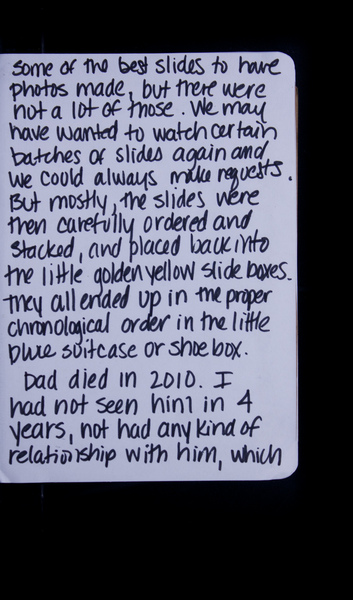 some of the best slides to have
photos made, but there were
not a lot of those. We may
have wanted to watch certain
batches of slides again and
we could always make requests.
But mostly, the slides were
then carefully ordered and
stacked, and placed back into
the little golden yellow slide boxes.
They all ended up in the proper
chronological order in the little
blue suitcase or shoebox.
Dad died in 2010. I
had not seen him in 4
years, not had any kind of
relationship with him, which